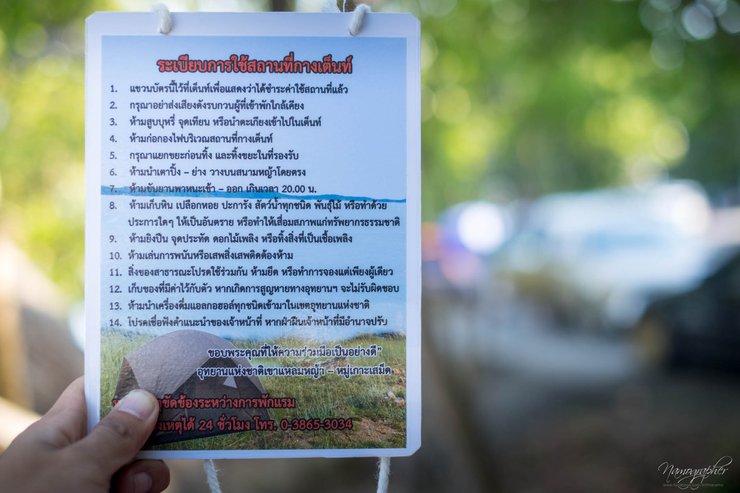 ระเบียบการใช้สถานที่กางเต็นท์
1. แขวนบัตรนี้ไว้ที่เต็นท์เพื่อแสดงว่าได้ชำระค่าใช้สถานที่แล้ว
2. กรุณาอย่าส่งเสียงดังรบกวนผู้ที่เข้าพักใกล้เคียง
3. ห้ามสูบบุหรี่ จุดเทียน หรือนำตะเกียงเข้าไปในเต็นท์
4. ห้ามก่อกองไฟบริเวณสถานที่กางเต็นท์
5. กรุณาแยกขยะก่อนทิ้ง และทิ้งขยะในที่รองรับ
6. ห้ามนำเตาปิ้ง – ย่าง วางบนสนามหญ้าโดยตรง
7. ห้ามขับยานพาหนะเข้า – ออก เกินเวลา 20.00 น.
8. ห้ามเก็บหิน เปลือกหอย ปะการัง สัตว์น้ำทุกชนิด พันธุ์ไม้ หรือทำด้วย
ประการใดๆ ให้เป็นอันตราย หรือทำให้เสื่อมสภาพแก่ทรัพยากรธรรมชาติ
9. ห้ามยิงปืน จุดประทัด ดอกไม้เพลิง หรือทิ้งสิ่งที่เป็นเชื้อเพลิง
10. ห้ามเล่นการพนันหรือเสพสิ่งเสพติดต้องห้าม
11. สิ่งของสาธารณะโปรดใช้ร่วมกัน ห้ามยึด หรือทำการจองแต่เพียงผู้เดียว
12. เก็บของที่มีค่าไว้กับตัว หากเกิดการสูญหายทางอุทยานฯ จะไม่รับผิดชอบ
13. ห้ามนำเครื่องดื่มแอลกอฮอล์ทุกชนิดเข้ามาในเขตอุทยานแห่งชาติ
14. โปรดเชื่อฟังคำแนะนำของเจ้าหน้าที่ หากฝ่าฝืนเจ้าหน้าที่มีอำนาจปรับ
ขอบพระคุณที่ให้ความร่วมมือเป็นอย่างดี"
อุทยานแห่งชาติเขาแหลมหญ้า – หมู่เกาะเสม็ด
ขัดข้องระหว่างการพักแรม
เหตุได้ 24 ชั่วโมง โทร. 0-3865-3034
Namographer